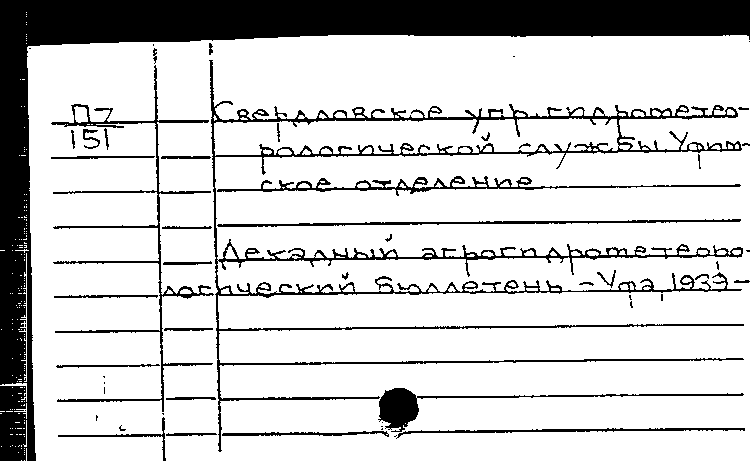 П7
151
Свердловское упр. гидрометео-
рологической службы Уфим-
ское отделение
Декадный агрогидрометеоро-
логический бюллетень - Уфа, 1939 -